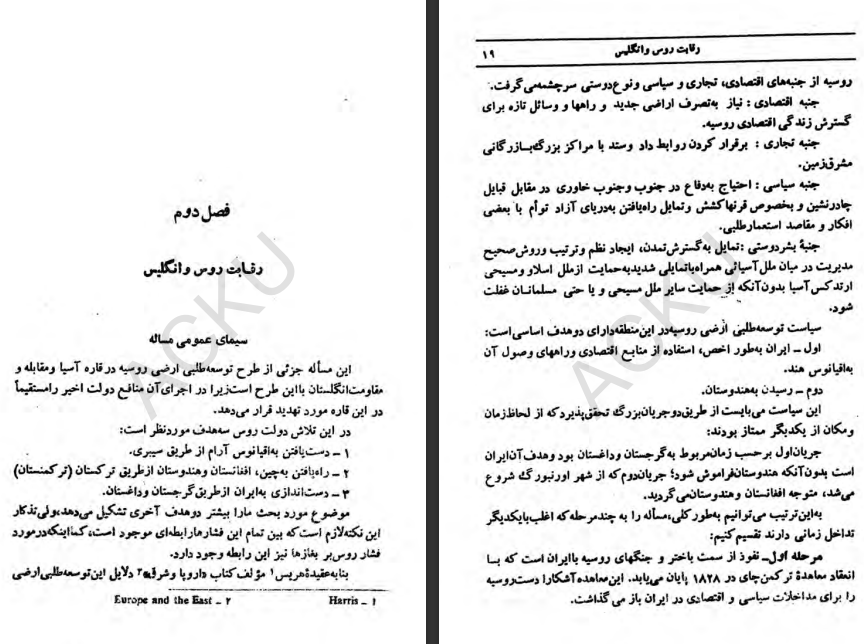 فصل دوم
رقابت روس و انگلیس
سیمای عمومی مساله
این مسأله جزئی از طرح توسعه‌طلبی ارضی روسیه در قاره آسیا ومقابله و
مقاومت‌انگلستان بااین طرح است‌زیرا در اجرای‌آن منافع دولت اخیر رامستقیماً
در این قاره مورد تهدید قرار می‌دهد.
در این تلاش دولت روس سه‌هدف موردنظر است:
۱ ــ دست‌یافتن به‌اقیانوس آرام از طریق سیبری.
۲ ــ راه‌یافتن به‌چین، افغانستان وهندوستان ازطریق ترکستان (ترکمنستان)
۳ ــ دست‌اندازی به‌ایران ازطریق‌گرجستان وداغستان.
موضوع مورد بحث مارا بیشتر دوهدف آخری تشکیل می‌دهد،ولی‌تذکار
این نکته‌لازم است‌که بین تمام این فشارهارابطه‌ای موجود است،کمااینکه‌درمورد
فشار روس‌بر بغازها نیز این رابطه وجود دارد.
بنابه‌عقیدهٔ‌هریس۱ مؤلف‌کتاب «اروپا وشرق»۲ دلایل این‌توسعه‌طلبی‌ارضی
۱ ــ Harris ۲ ــ Europe and the East
رقابت روس وانگلیس ۱۹
روسیه از جنبه‌های اقتصادی، تجاری و سیاسی ونوع‌دوستی سرچشمه‌می‌گرفت.
جنبه اقتصادی : نیاز به‌تصرف اراضی جدید و راهها و وسائل تازه برای
گسترش زندگی اقتصادی روسیه.
جنبه تجاری : برقرار کردن روابط داد وستد با مراکز بزرگ‌بازرگانی
مشرق‌زمین.
جنبه سیاسی : احتیاج به‌دفاع در جنوب وجنوب خاوری در مقابل قبایل
چادرنشین و بخصوص قرنهاکشش وتمایل راه‌یافتن به‌دریای آزاد توأم با بعضی
افکار و مقاصد استعمارطلبی.
جنبهٔ بشردوستی :تمایل به‌گسترش‌تمدن، ایجاد نظم وترتیب وروش‌صحیح
مدیریت در میان ملل‌آسیائی همراه‌باتمایلی شدیدبه‌حمایت ازملل اسلاو ومسیحی
ارتدکس‌آسیا بدون‌آنکه از حمایت سایر ملل مسیحی و یا حتی مسلمانان غفلت
شود.
سیاست توسعه‌طلبی ارضی روسیه‌در این‌منطقه‌دارای دوهدف اساسی‌است:
اول ــ ایران به‌طور اخص، استفاده از منابع اقتصادی وراههای وصول آن
به‌اقیانوس هند.
دوم ــ رسیدن به‌هندوستان.
این سیاست می‌بایست از طریق‌دوجریان‌بزرگ تحقق‌پذیرد که از لحاظ‌زمان
ومکان از یکدیگر ممتاز بودند:
جریان‌اول برحسب زمان‌مربوط به‌گرجستان وداغستان بود وهدف‌آن‌ایران
است بدون‌آنکه هندوستان‌فراموش شود؛ جریان‌دوم‌که از شهر اورنبورگ شروع
می‌شد، متوجه افغانستان وهندوستان‌می‌گردید.
به‌این‌ترتیب می‌توانیم به‌طور کلی،مسأله را به‌چند مرحله‌که اغلب‌بایکدیگر
تداخل زمانی دارند تقسیم‌کنیم:
مرحله اول‌ــ نفوذ از سمت باختر و جنگهای روسیه باایران است که بــا
انعقاد معاهدهٔ ترکمن‌چای در ۱۸۲۸ پایان می‌یابد. این‌معاهده‌آشکارا دست‌روسیه
را برای مداخلات سیاسی و اقتصادی در ایران باز می‌گذاشت.
ACKU
ACKU